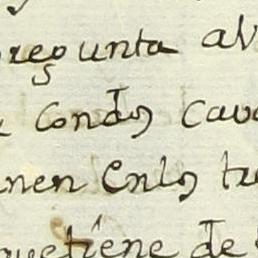 pregunta al
condos cava
nen enlos tr
quetiene de